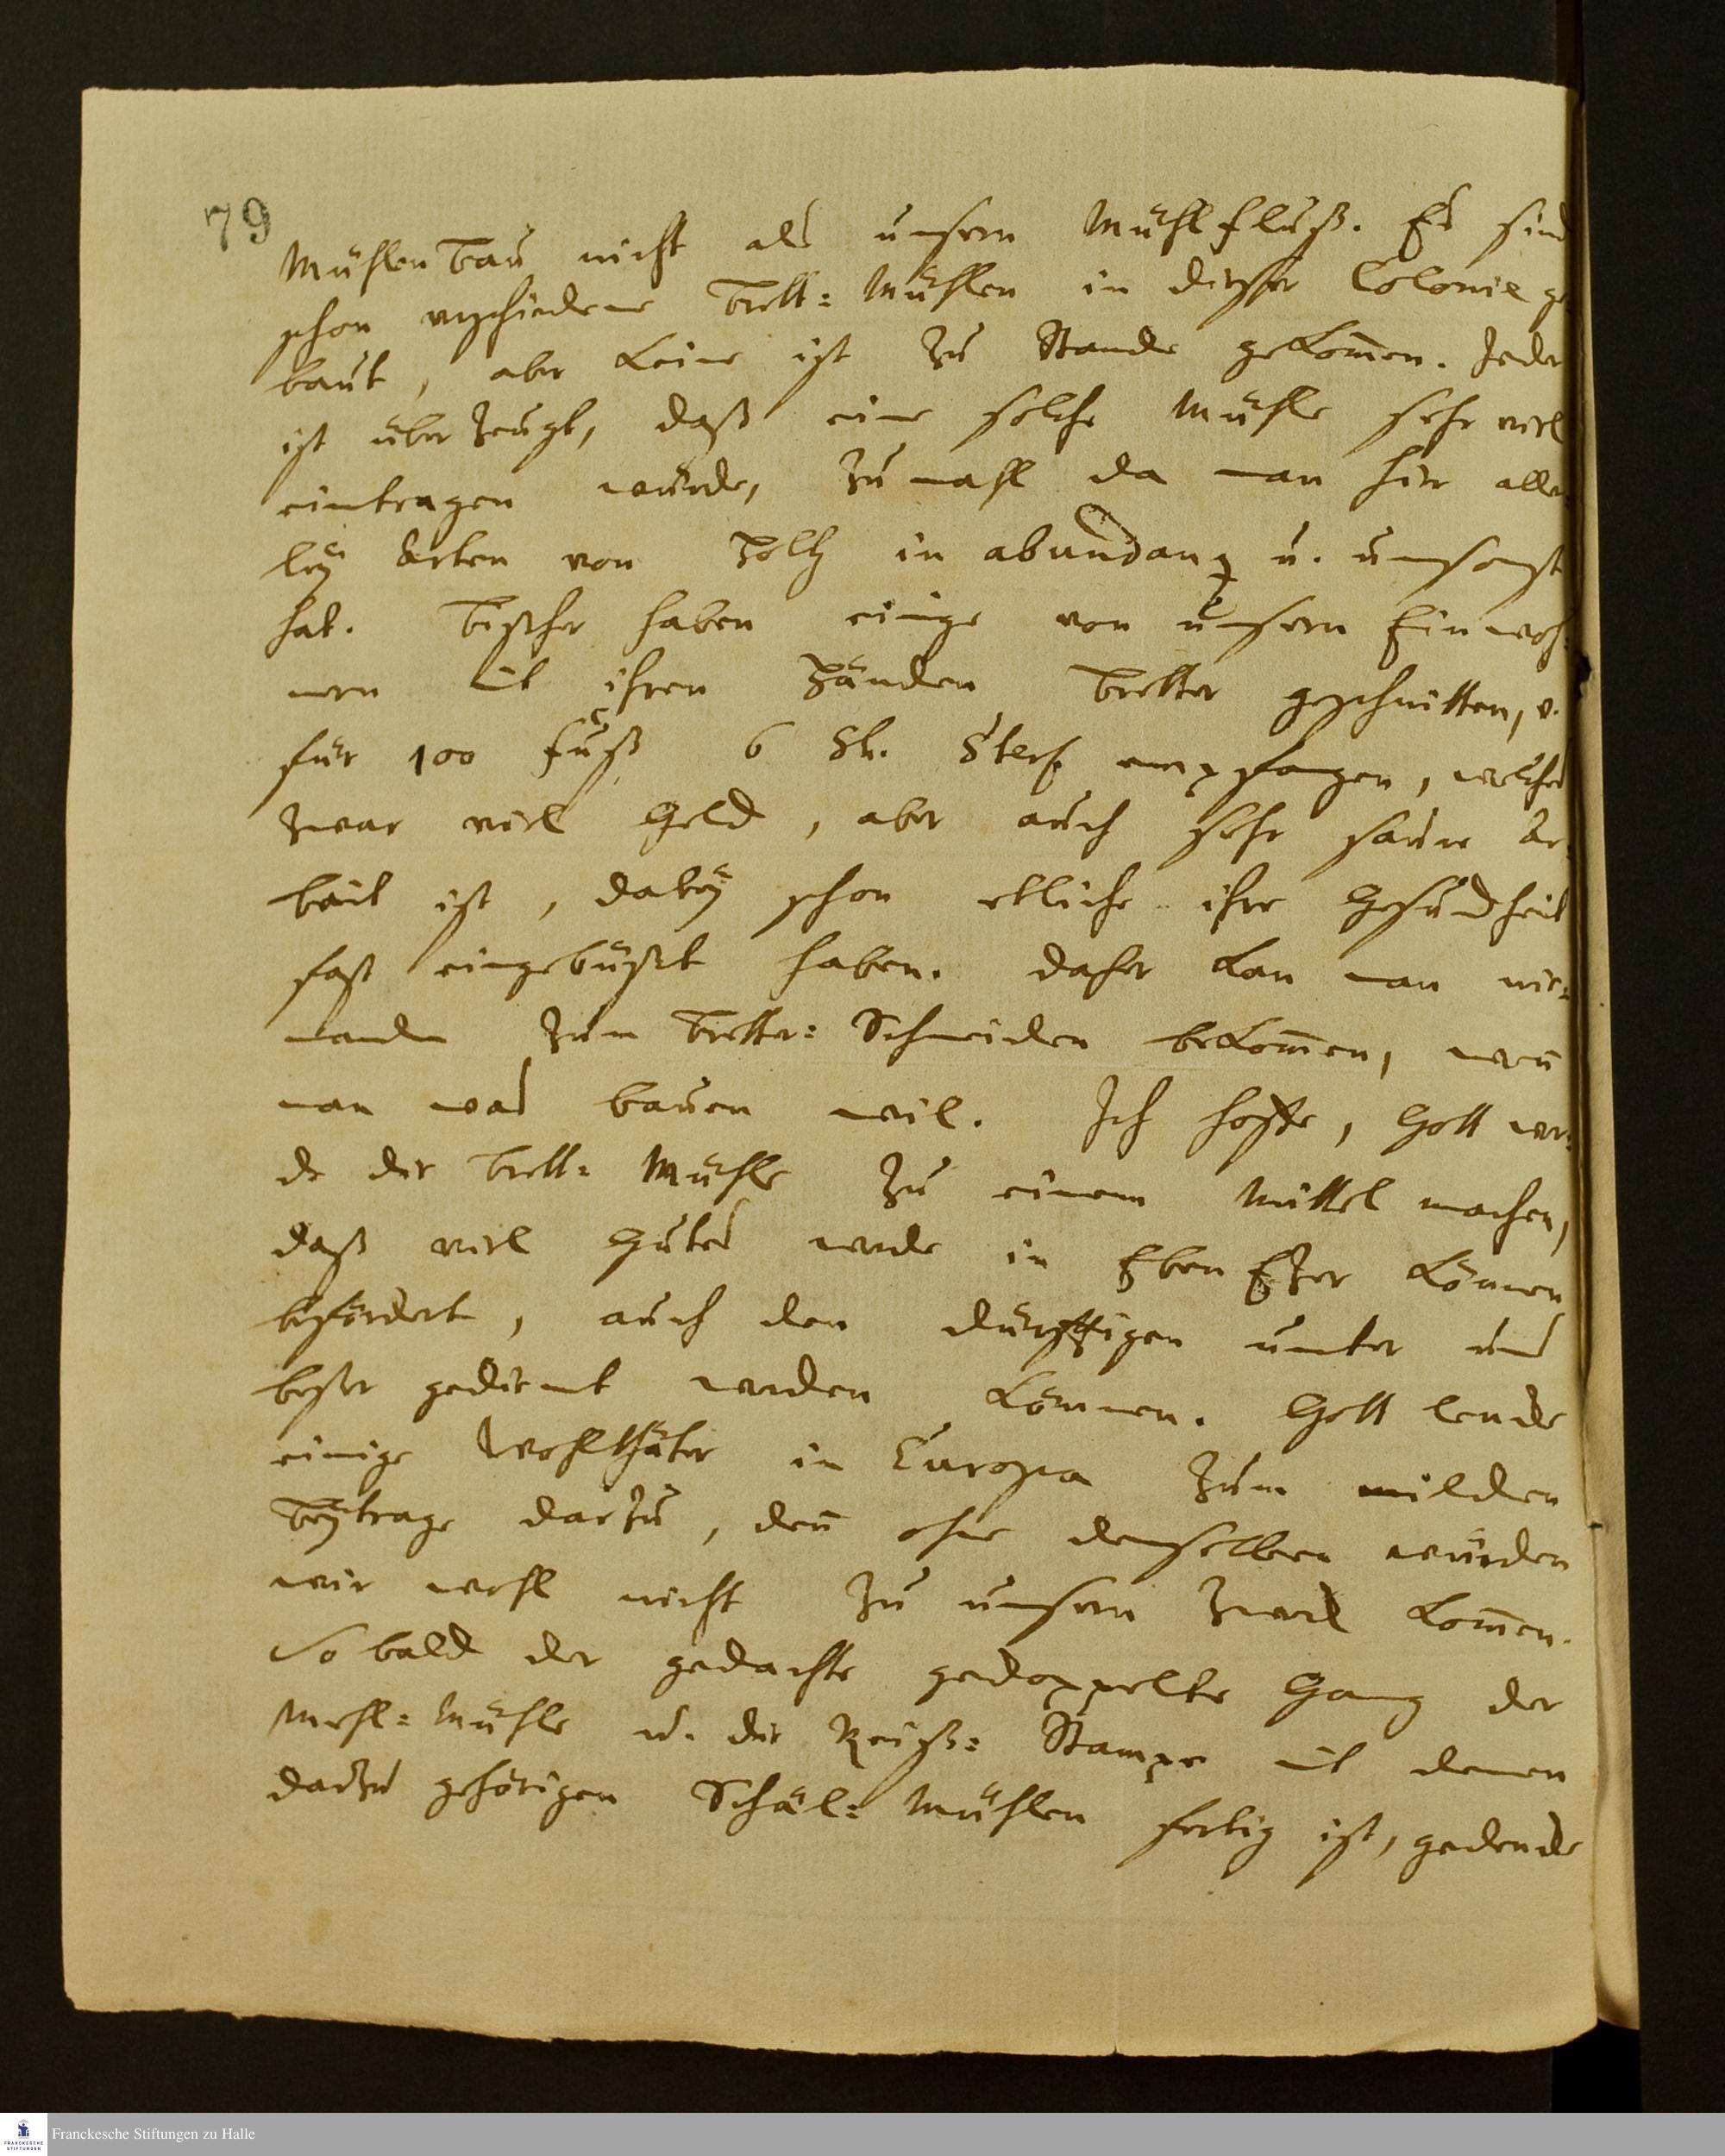 79
Mühlen Bau nicht als unsern Mühlfluß. Es sind
schon verschiedene Brett-Mühlen in dieser Colonie ge
baut, aber keine ist zu Stande gekom̄en. Jeder
ist überzeugt, daß eine solche Mühle sehr viel
eintragen würde, zumahl da man hier aller
leÿ Arten von Holtz in abundanz u. umsonst
hat. Bißher haben einige von unsern Einwoh-
nern mit ihren Händen Bretter geschnitten, u.
für 100 Fuß 6 Sh. Sterl. empfangen, welches
zwar viel Geld, aber auch sehr saure Ar-
beit ist, dabeÿ schon etliche ihre Gesundheit
fast eingebüßet haben. Daher kan man nie-
manden zum Bretter-Schneiden bekom̄en, wen̄
man was bauen wil. Ich hoffe, Gott wer-
de die Brett-Mühle zu einem Mittel machen,
daß viel Gutes werde in EbenEzer können
befördert, auch den dürfftigen unter uns
beßer gedienet werden können. Gott lencke
einige Wohlthäter in Europa zum milden
Beÿtrage darzu, den̄ ohne denselben würden
wir wohl nicht zu unserm Zweck kom̄en.
So bald der gedachte gedoppelte Gang der
Mehl-Mühle u. die Reiß-Stampe mit denen
darzu gehörigen Schäl-Mühlen fertig ist, gedencke
Franckesche Stiftungen zu Halle
FRANCKESCHE
STIFTUNGEN